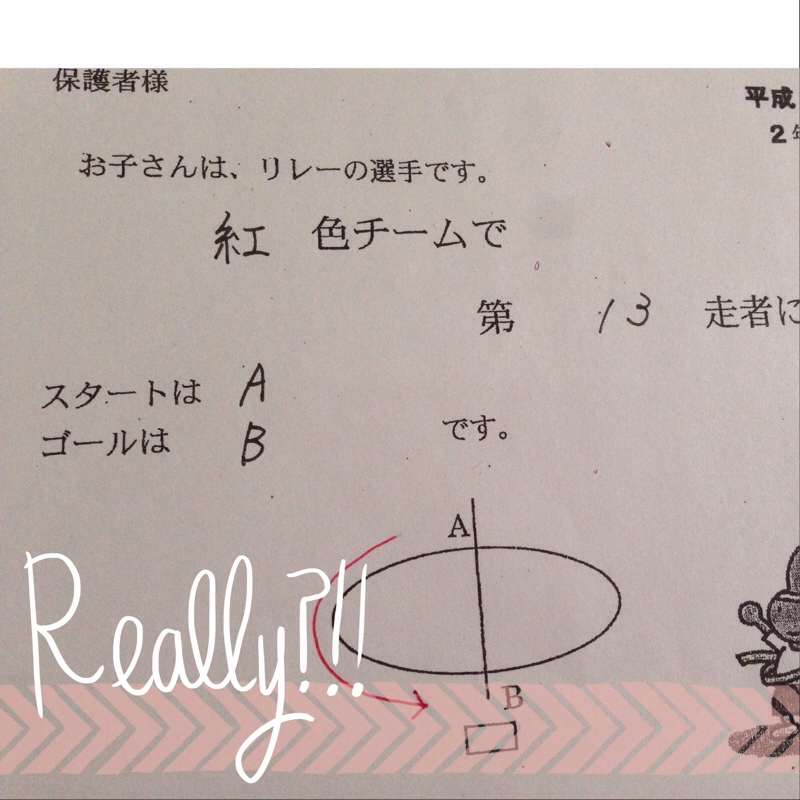 保護者様
平成
2年
お子さんは、リレーの選手です。
紅 色チームで
第 13 走者に
スタートは A
ゴールは B です。
A
B
Really?!!